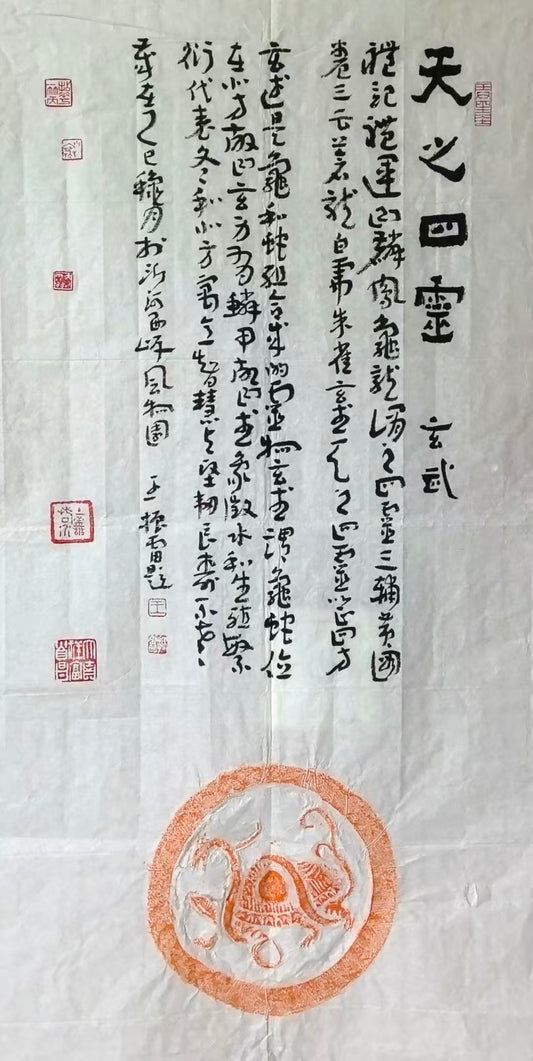 天之四靈 玄武
禮記禮運曰麟鳳龜龍謂之四靈三輔黄圖
卷三云蒼龍白虎朱雀玄武天之四靈以正四方
玄武是龜和蛇組合成的靈物玄武謂龜蛇位
在北方故曰玄身有鱗甲故曰武象徵水和生殖繁
衍代表冬和北方寓意智慧與堅韌長壽不老
歲在乙巳 月於 風物園 王振 題